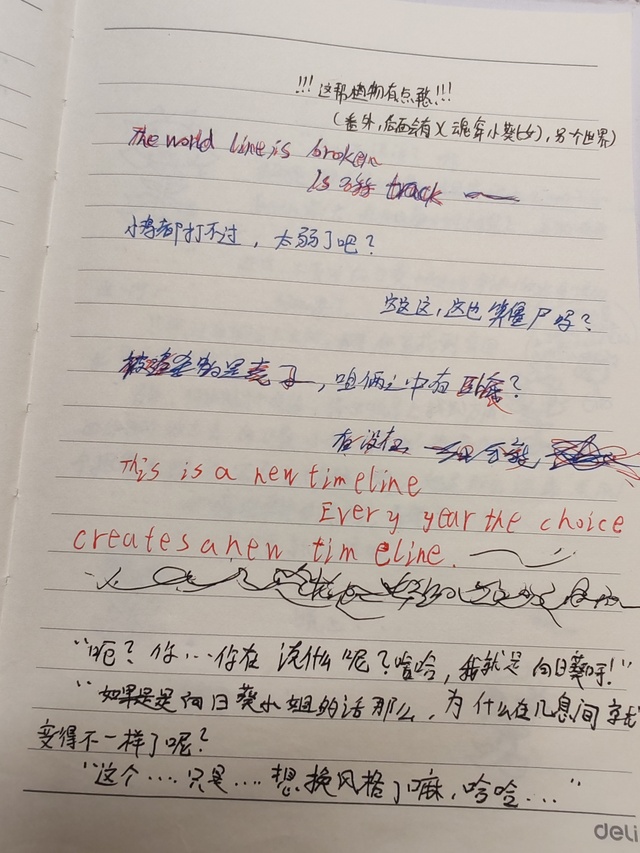 !!!这帮植物有点憨!!!
(番外,后面会有X魂穿小葵(女),另个世界)
The world line is broken
Is track
都打不过,太弱了吧?
这这这,这也算僵尸吗?
,咱俩之中有卧底?
在没在
This is a new timeline
Every year the choice
creates a new timeline.
“呃?你…你在说什么呢?哈哈,我就是向日葵呀!”
“如果是向日葵小姐的话那么,为什么在几息间就
变得不一样了呢?
“这个....只是....想换风格了嘛,哈哈...”
deli